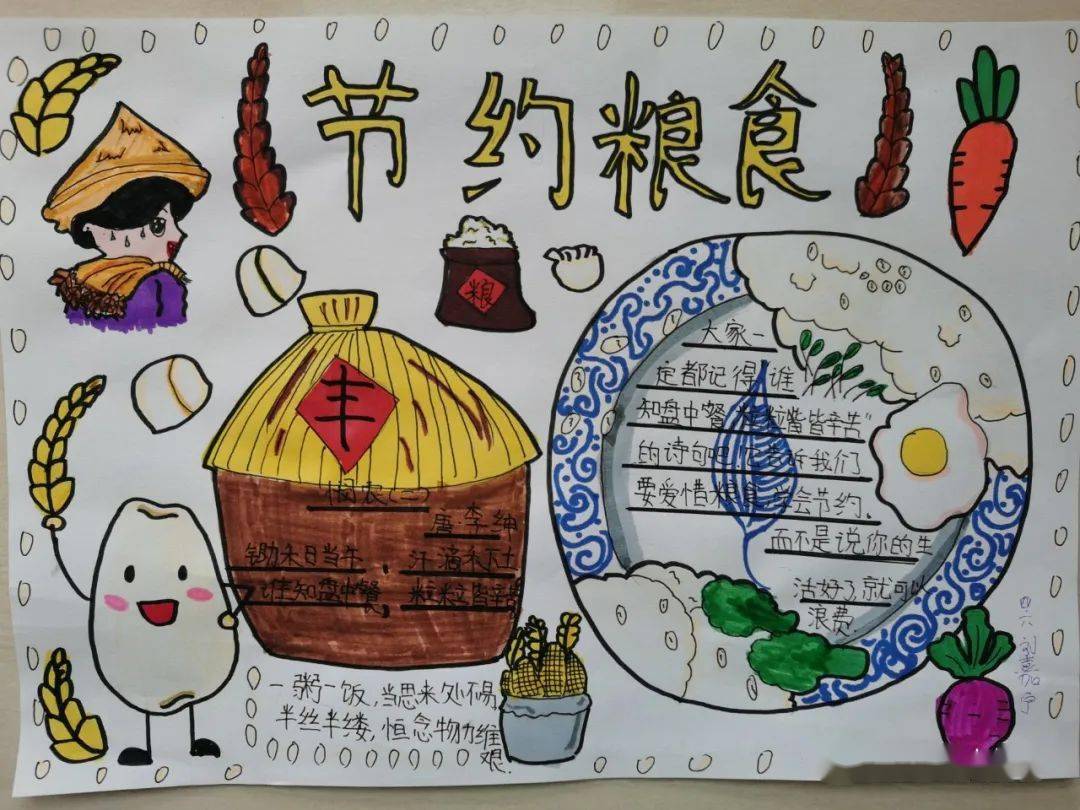 节约粮食
粮
丰
悯农(二)
唐·李绅
锄禾日当午,汗滴禾下土
谁知盘中餐,粒粒皆辛苦
大家一
定都记得"谁
知盘中餐,粒粒皆辛苦"
的诗句吧,它告诉我们
要爱惜粮食,学会节约。
而不是说你的生
活好了,就可以
浪费
一粥一饭,当思来处不易,
半丝半缕,恒念物力维
艰.
四.六 刘嘉宁